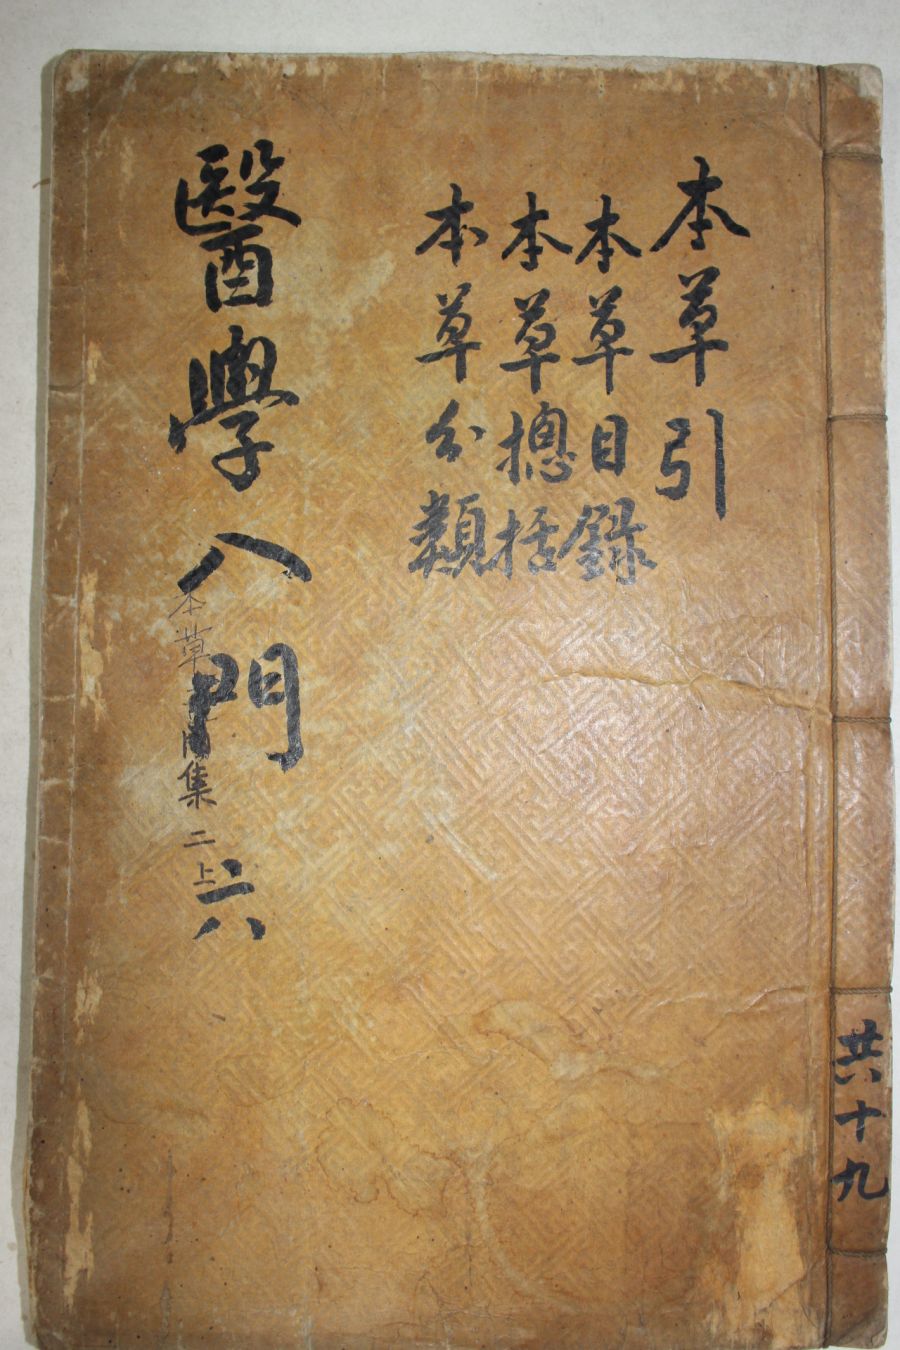 本草引
本草目錄
本草揔括
本草分類
醫學入門 六
本草 集 二上
共十九